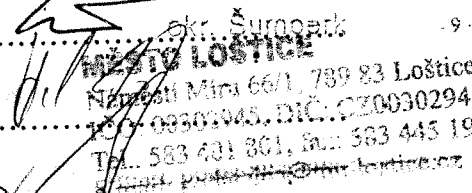 okr. Šumperk
- 9 -
MĚSTO LOŠTICE
Náměstí Míru 66/1, 789 83 Loštice
IČO: 00302945, DIČ: CZ0030294
Tel.: 583 401 801, fax: 583 445 19